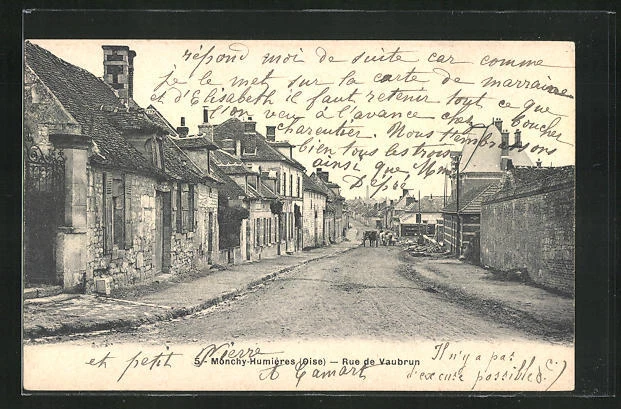 répond moi de suite car comme
je le met sur la carte de marraine
et d'Elisabeth il faut retenir tout ce que
l'on veu à l'avance chez boucher
charcutier. Nous t'embrassons
bien tous les trois
ainsi que Mme
et petit Pierre
5 - Monchy-Humières (Oise) — Rue de Vaubrun
A Camart
(Il n'y a pas
d'excuse possible)